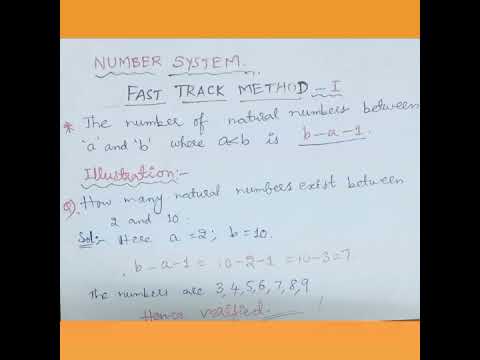 NUMBER SYSTEM.
FAST TRACK METHOD - I
* The number of natural numbers between
'a' and 'b' where a<b is b-a-1.
Illustration:-
Q). How many natural numbers exist between
2 and 10.
Sol:- Here a=2; b=10.
b-a-1 = 10-2-1 = 10-3=7
The numbers are 3,4,5,6,7,8,9
Hence verified.